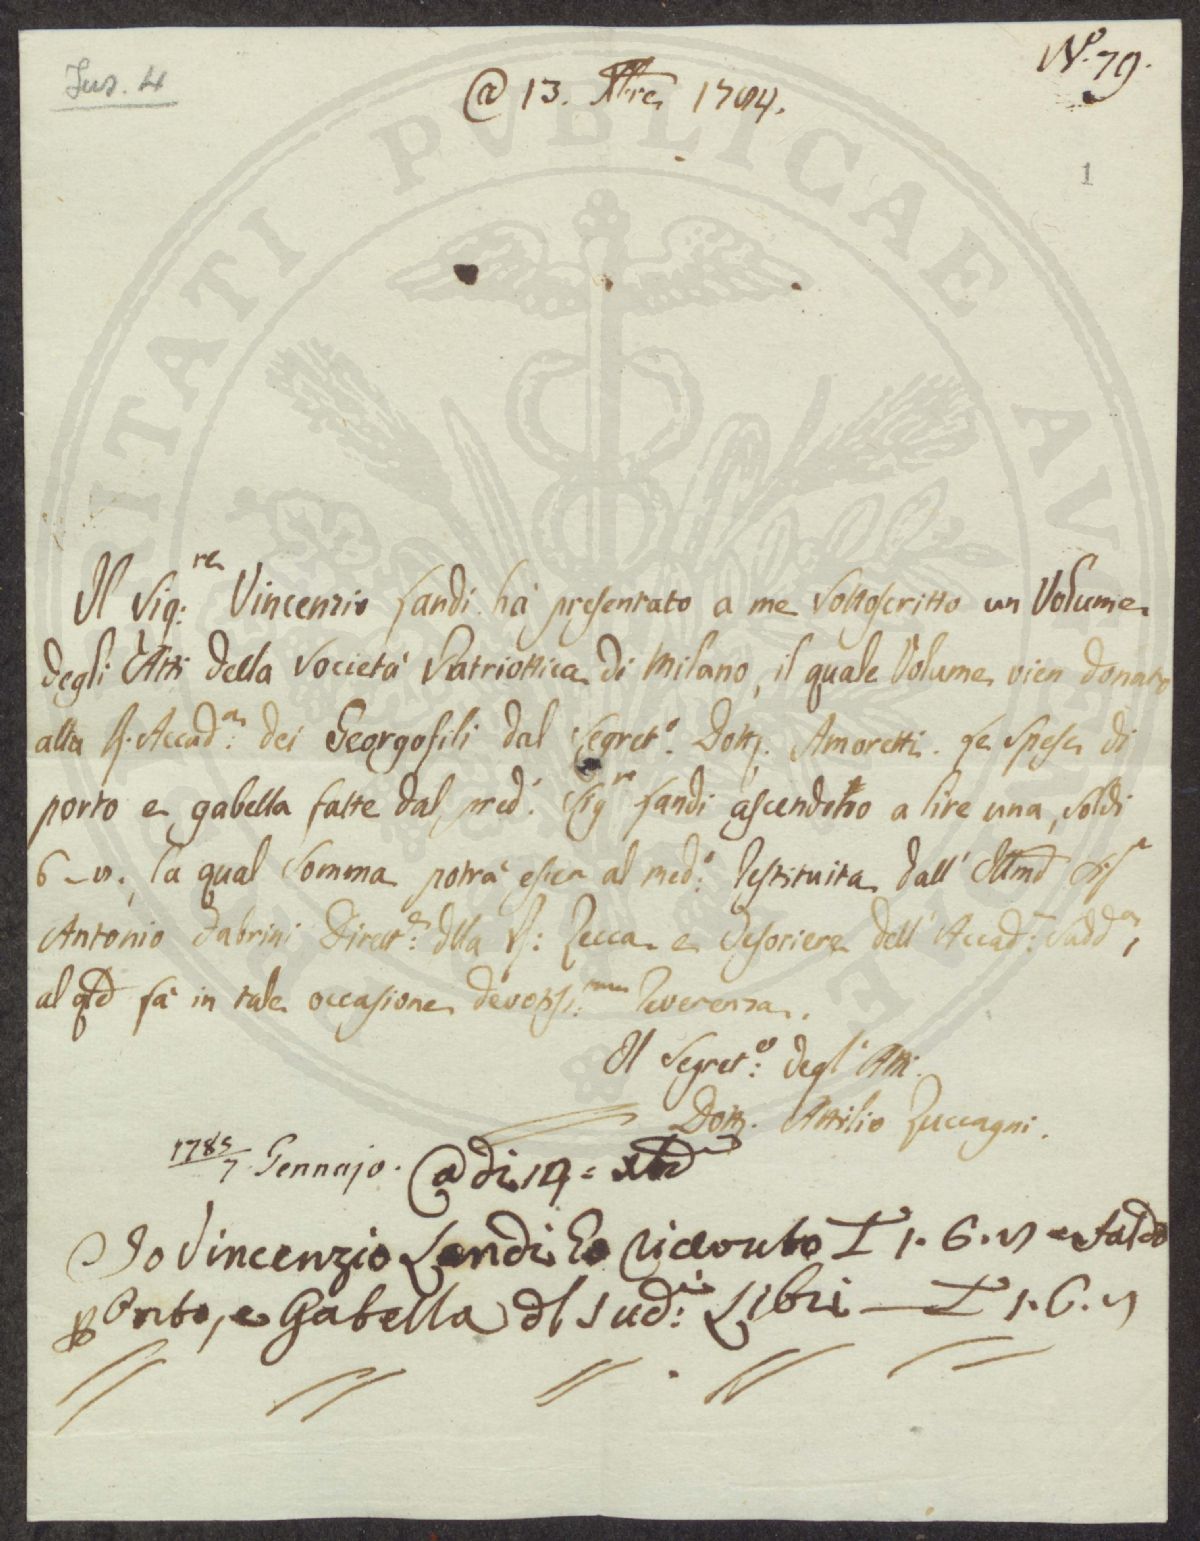 Ins. 4
N.° 79.
@ 13. Xbre 1784.
1
PUBLICAE
Il Sig:re Vincenzio Landi ha presentato a me sottoscritto un Volume
degli Atti della Società Patriottica di Milano, il quale Volume vien donato
alla R. Accad:a dei Georgofili dal Segret:o Dott. Amoretti. Le spese di
porto e gabella fatte dal med.° Sig.re Landi ascendono a lire una, soldi
6 –, la qual somma potrà esser al med:° restituita dall'
Antonio Fabrini Dirett:e dlla R: Zecca e Tesoriere dell' Accad: Sudd:a,
al qd fà in tale occasione devotiss:ma reverenza.
Il Segret:o degl' Atti
Dott. Attilio Zuccagni.
1785/7 Gennajo.
@ di 19 = Xbre
Io Vincenzio Landi ho riceuto £ 1. 6.
porto, e Gabella dl sud: Libri — £ 1. 6.